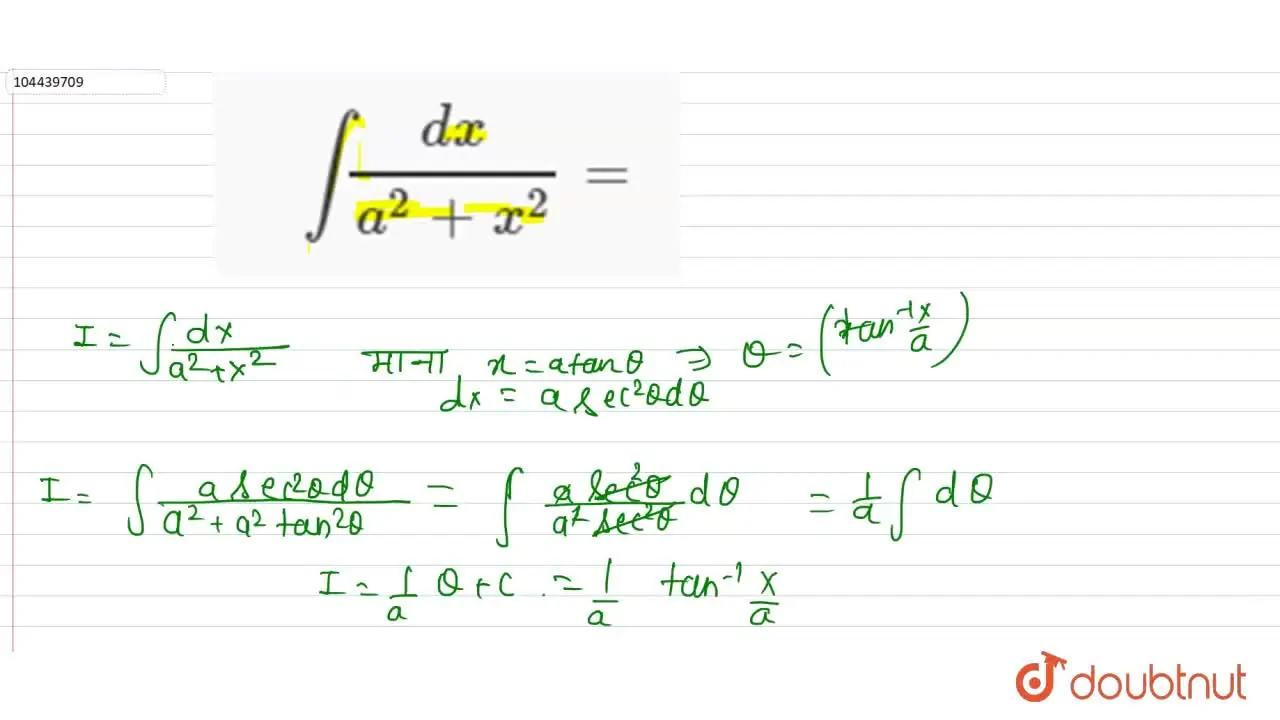 104439709
∫ dx / (a² + x²) =
I = ∫ dx / (a² + x²) माना x = a tan θ ⇒ θ = (tan⁻¹ x/a)
dx = a sec² θ dθ
I = ∫ a sec² θ dθ / (a² + a² tan² θ) = ∫ a sec² θ / (a² sec² θ) dθ = 1/a ∫ dθ
I = 1/a θ + C . = 1/a tan⁻¹ x/a
doubtnut